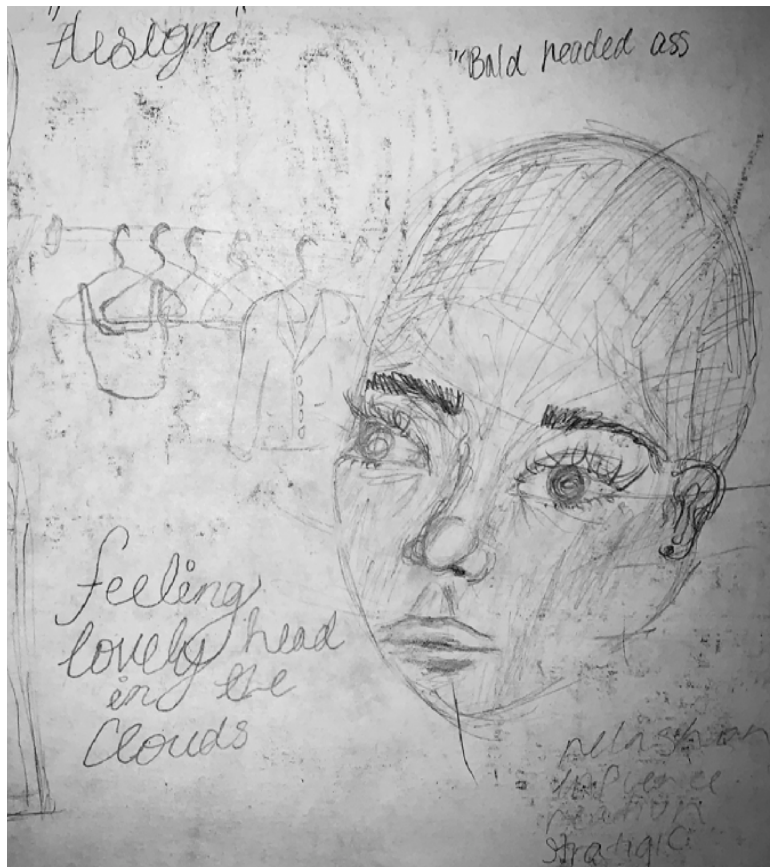 "design"
"Bald headed ass
feeling
lovely head
in the
Clouds
stratigic